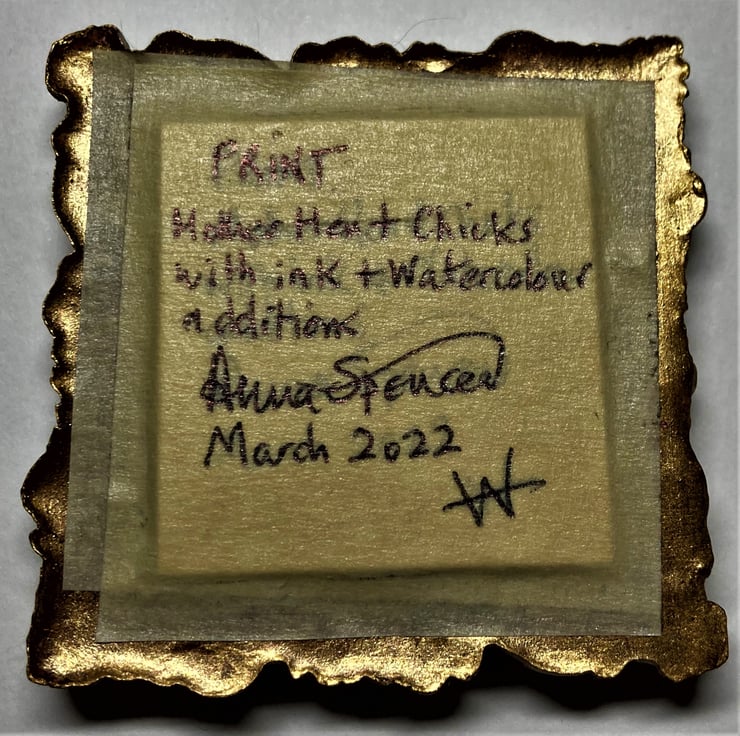 PRINT
Mother Hen + Chicks
with ink + Watercolour
additions
Anna Spencer
March 2022
W